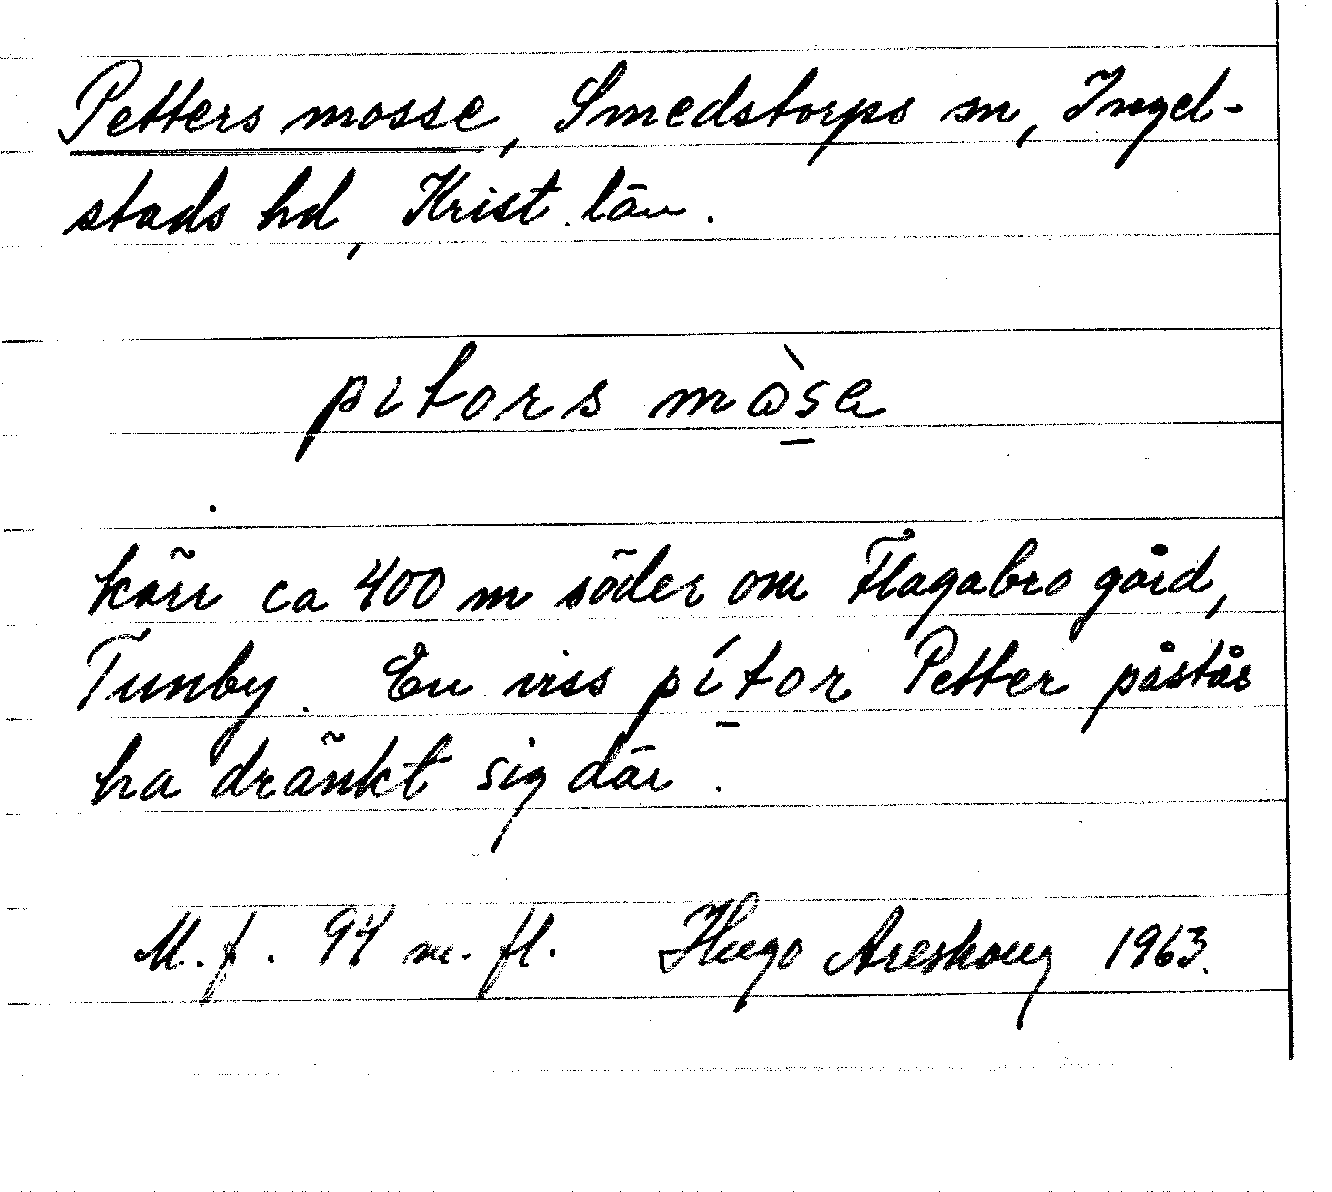 Petters mosse, Smedstorps sn, Ingel-
stads hd, Krist. län.
pitors mòsa
kärr ca 400 m söder om Flagabro gård,
Tunby. En viss pítor Petter påstås
ha dränkt sig där.
M.f. 94 m.fl. Hugo Areskoug 1963.